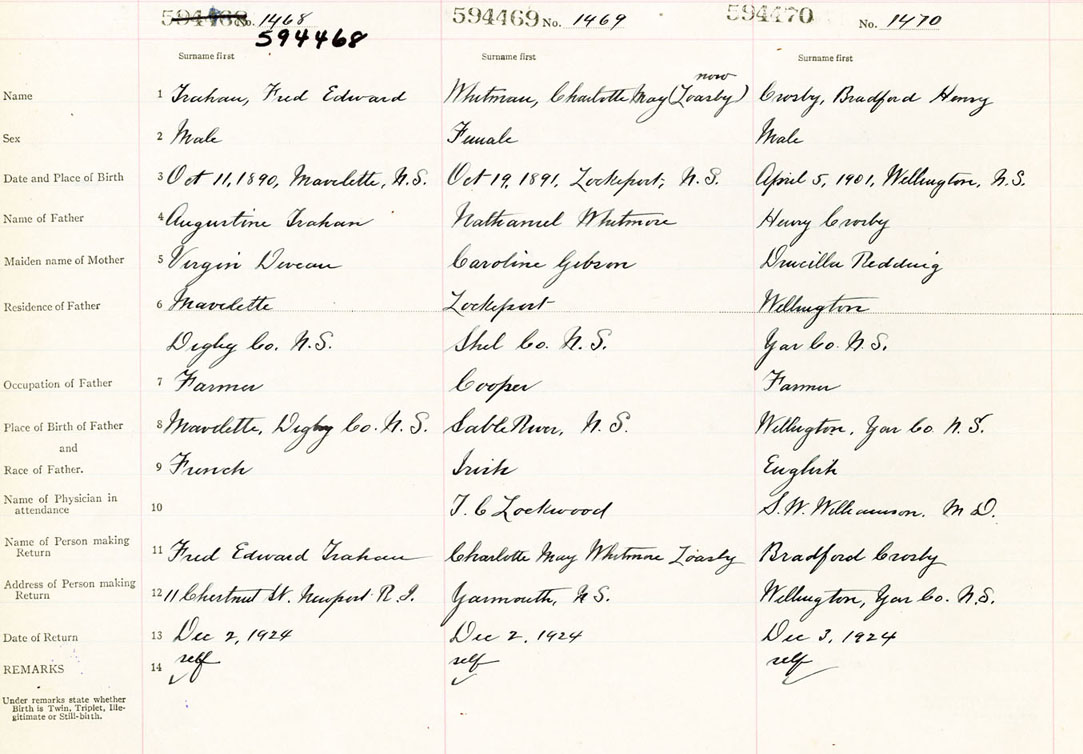 594468 No. 1468 594469 No. 1469 594470 No. 1470
594468
Surname first Surname first Surname first
now
Name 1 Trahan, Fred Edward Whitman, Charlotte May (Loasby) Crosby, Bradford Henry
Sex 2 Male Female Male
Date and Place of Birth 3 Oct 11, 1890, Mavelette, N.S. Oct 19, 1891, Lockeport, N.S. April 5, 1901, Wellington, N.S.
Name of Father 4 Augustine Trahan Nathaniel Whitmore Henry Crosby
Maiden name of Mother 5 Virgin Deveau Caroline Gibson Drucilla Redding
Residence of Father 6 Mavelette Lockeport Wellington
Digby Co. N.S. Shel Co. N.S. Yar Co. N.S.
Occupation of Father 7 Farmer Cooper Farmer
Place of Birth of Father 8 Mavelette, Digby Co. N.S. Sable River, N.S. Wellington, Yar Co. N.S.
and
Race of Father. 9 French Irish English
Name of Physician in
attendance 10 T. C Lockwood S. W. Williamson. M D.
Name of Person making
Return 11 Fred Edward Trahan Charlotte May Whitmore Loasby Bradford Crosby
Address of Person making
Return 12 11 Chestnut St. Newport R.I. Yarmouth, N.S. Wellington, Yar Co. N.S.
Date of Return 13 Dec 2, 1924 Dec 2, 1924 Dec 3, 1924
REMARKS 14 self self self
Under remarks state whether
Birth is Twin, Triplet, Ille-
gitimate or Still-birth.